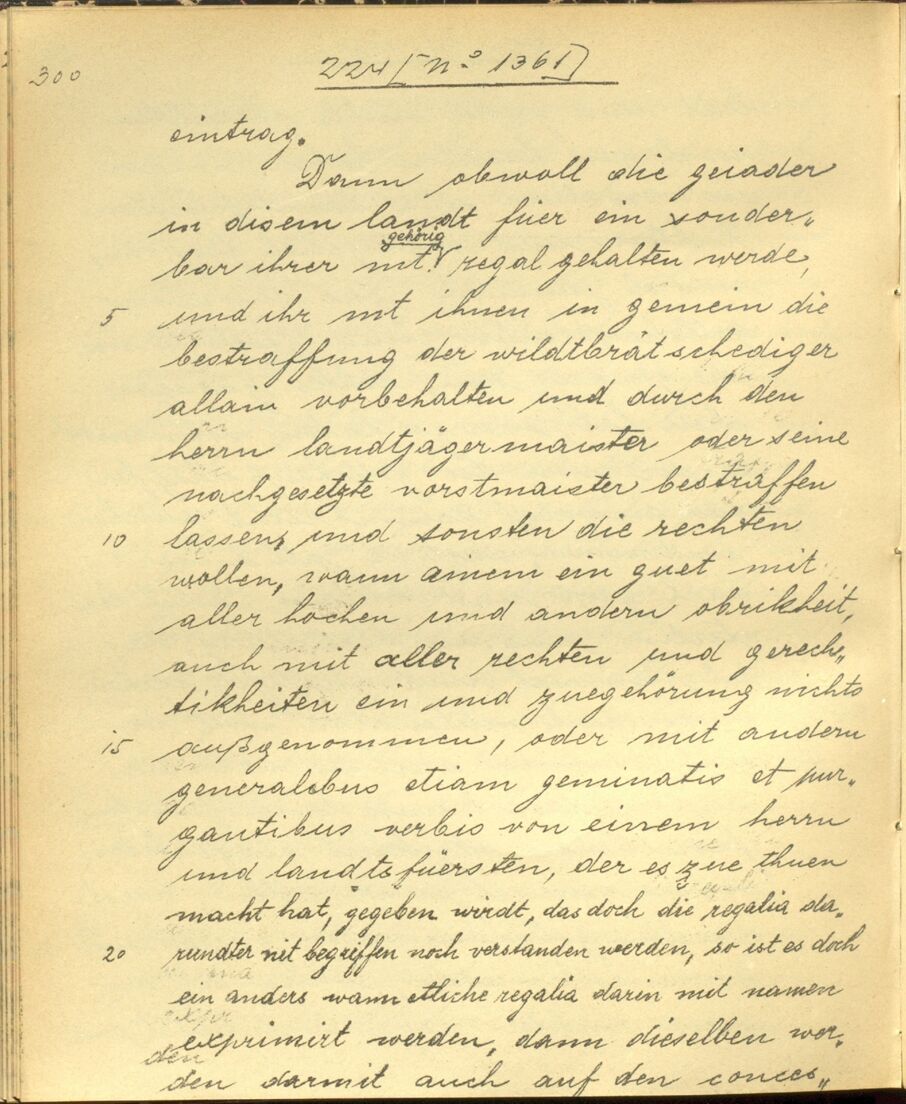 300
224 [Nº 1361]
eintrag.
Dann obwoll die geiader
in disem landt füer ein sonder„
gehörig
bar ihrer mt. regal gehalten werde,
5 und ihr mt ihnen in gemein die
bestraffung der wildtbrätschediger
allain vorbehalten und durch den
herrn landtjägermaister oder seine
nachgesetzte vorstmaister bestraffen
10 lassen, und sonsten die rechten
wollen, wann ainem ein guet mit
aller hochen und andern obrikheit,
auch mit aller rechten und gerech„
tikheiten ein und zuegehörung nichts
15 außgenommen, oder mit andern
generalebus etiam geminatis et pur„
gantibus verbis von einem herrn
und landtsfüersten, der es zue thuen
macht hat, gegeben wirdt, das doch die regalia da„
20 rundter nit begriffen noch verstanden werden, so ist es doch
ein anders wann etliche regalia darin mit namen
exprimirt werden, dann dieselben wer„
den darmit auch auf den conces„